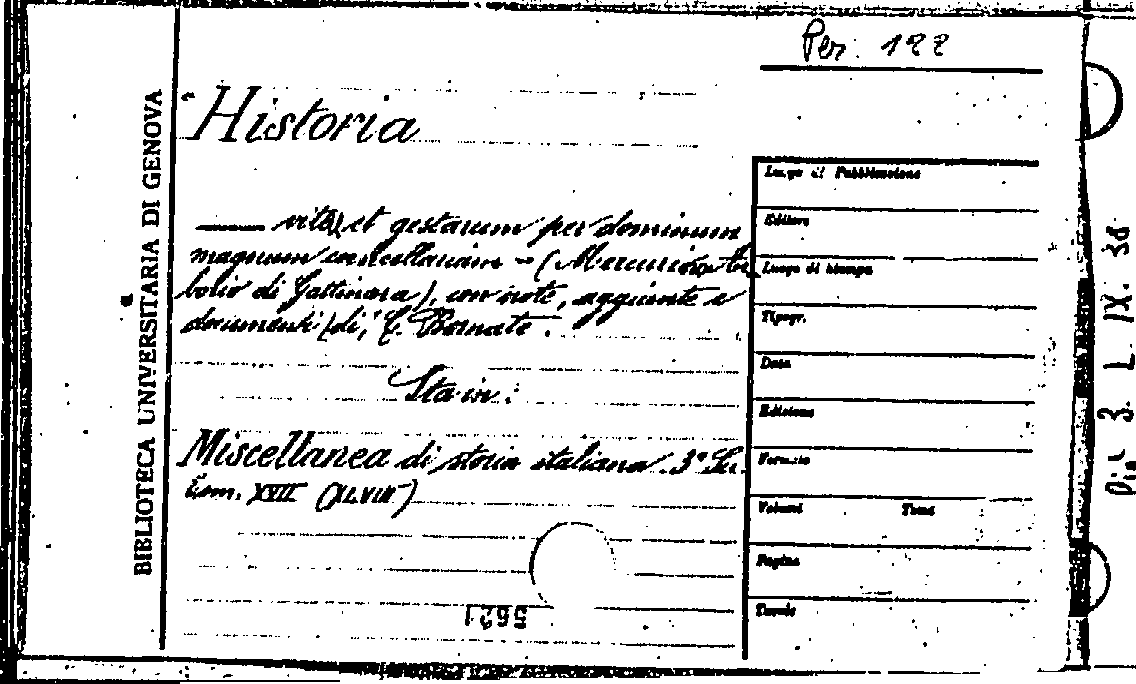 Per. 122
Historia
vitæ et gestarum per dominum
magnum cancellarium - (Mercurino Ar
bolio di Gattinara), con note, aggiunte e
documenti di C. Bornate.
Sta in:
Miscellanea di storia italiana. 3ª Ser.
Tom. XVII (XLVIII)
5621
BIBLIOTECA UNIVERSITARIA DI GENOVA
Luogo di Pubblicazione
Editore
Luogo di stampa
Tipogr.
Data
Edizione
Formato
Volumi Tomi
Pagine
Tavole
3. L. IX. 38